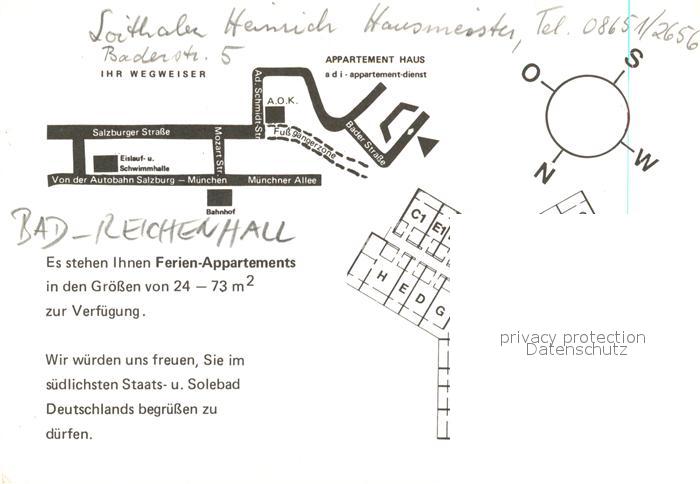 Loithaler Heinrich Hausmeister, Tel. 08651/2656
Baderstr. 5
IHR WEGWEISER
APPARTEMENT HAUS
a d i - appartement-dienst
Ad. Schmidt-Str.
A.O.K.
Salzburger Straße
Mozart Str.
Fußgängerzone
Bader Straße
Eislauf- u.
Schwimmhalle
Von der Autobahn Salzburg — München
Münchner Allee
Bahnhof
O
S
N
W
BAD-REICHENHALL
C1
E1
H
E
D
G
Es stehen Ihnen Ferien-Appartements
in den Größen von 24 — 73 m2
zur Verfügung.
Wir würden uns freuen, Sie im
südlichsten Staats- u. Solebad
Deutschlands begrüßen zu
dürfen.
privacy protection
Datenschutz